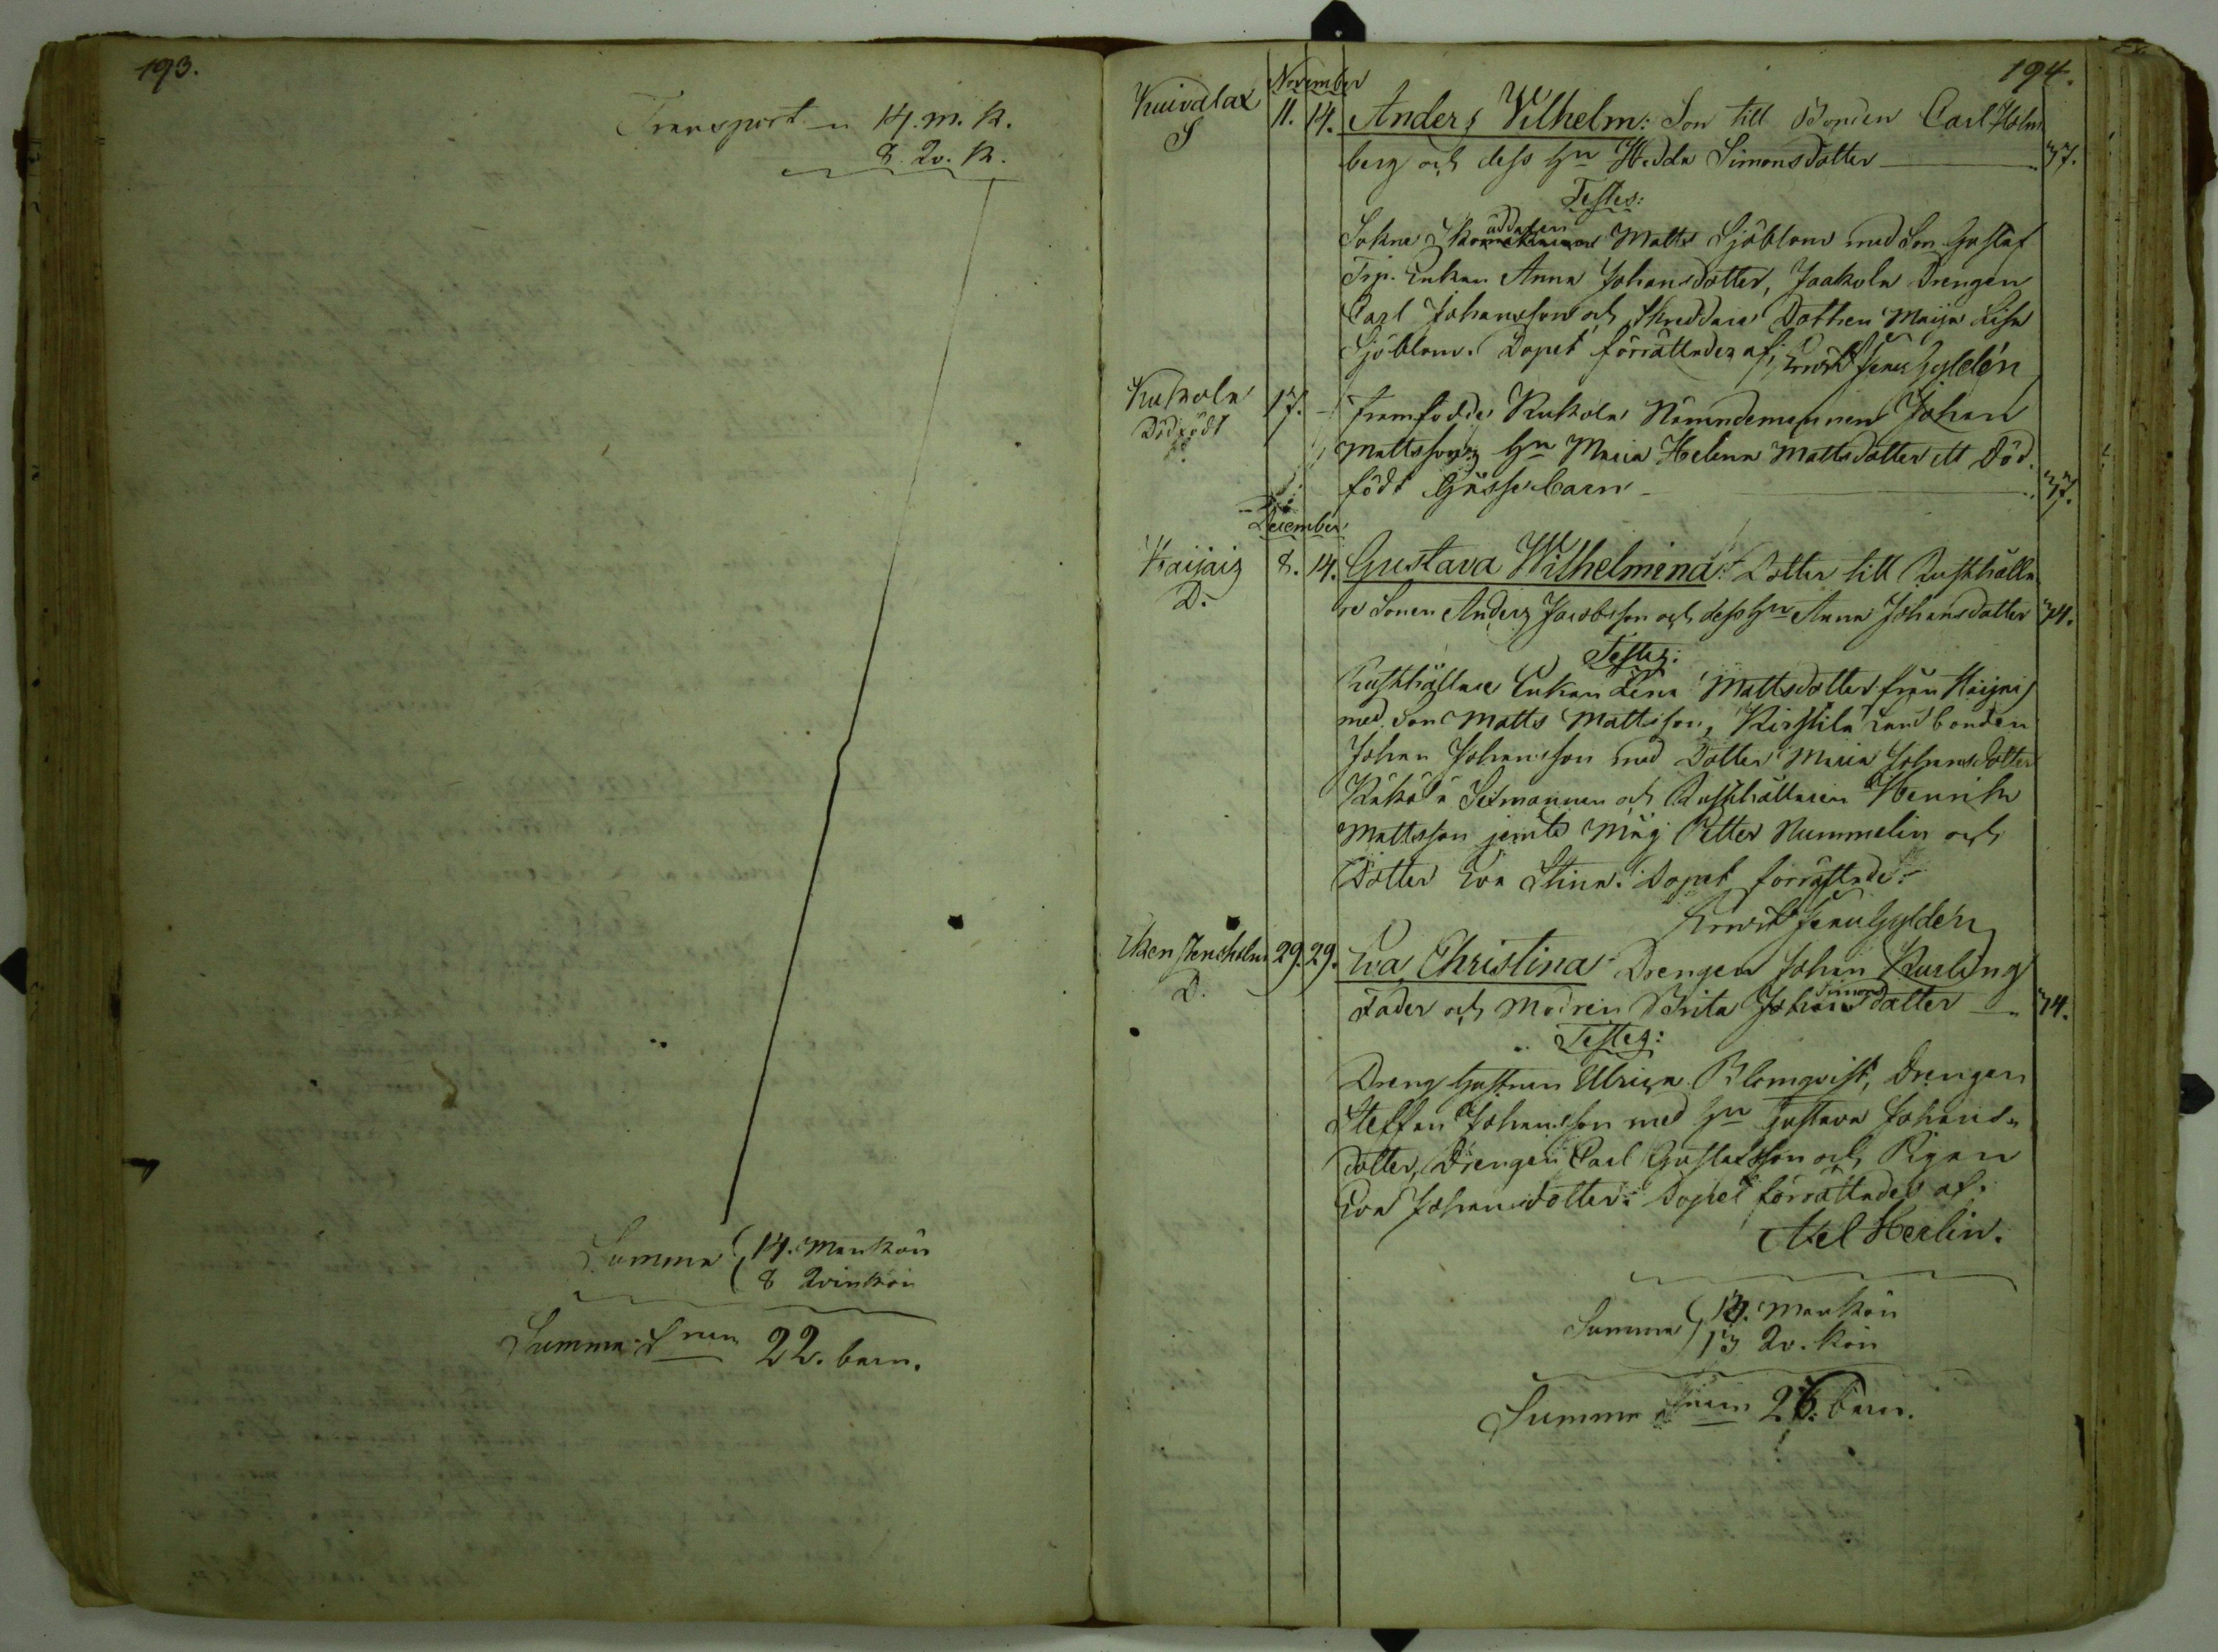 193.
Transport 14. m. k.
8. Qv. k.
Summa 14. Mankön
8 Qvinkön
Summa S:rum 22. barn.
194.
November
Kuivalax 11. 14. Anders Wilhelm: Son till Bonden Carl Holm
S
berg och dess Hu Hedda Simonsdotter 37.
Testes:
Sokne Skräddaren Matts Sjöblom med Son Gustaf
Enkan Anna Johansdotter, Jaakola Drengen
Carl Johansson och Skreddare Dottren Maija Lisa
Sjöblom. Dopet förrättades af, Gyldén
Kukola 17. Framfödde Kukola Nämndemannen Johan
Dödfödt
Mattssons Hu Maria Helena Mattsdotter ett Död
födt Gosse barn 37.
December
Kaijais 8. 14. Gustava Wilhelmina: Dotter till Rusthålla
D.
re Sonen Anders Jacobsson och dess Hu Anna Johansdotter 34.
Testes:
Rusthållare Enkan Lena Mattsdotter från Kaijais
med Son Matts Mattsson, Kirstilä Landbonden
Johan Johansson med Dotter Maria Johansdotter
Sexmannen och Rusthållaren Henrik
Mattsson jemte Måg Petter Nummelin och
Dotter Eva Stina. Dopet förrättade:
Gyldén
29. 29. Eva Christina Drengen Johan Karling
D.
Fader och Modren Brita Simonsdotter 34.
Testes:
Dreng Hustrun Ulrica Blomqvist, Drengen
Steffan Johansson med Hu Gustava Johans-
dotter, Drengen Carl Gustafsson och Pigan
Eva Johansdotter: Dopet förrättades af:
Axel Herlin.
Summa Mankön
13 Qv. kön
Summa S:rum 26. barn.